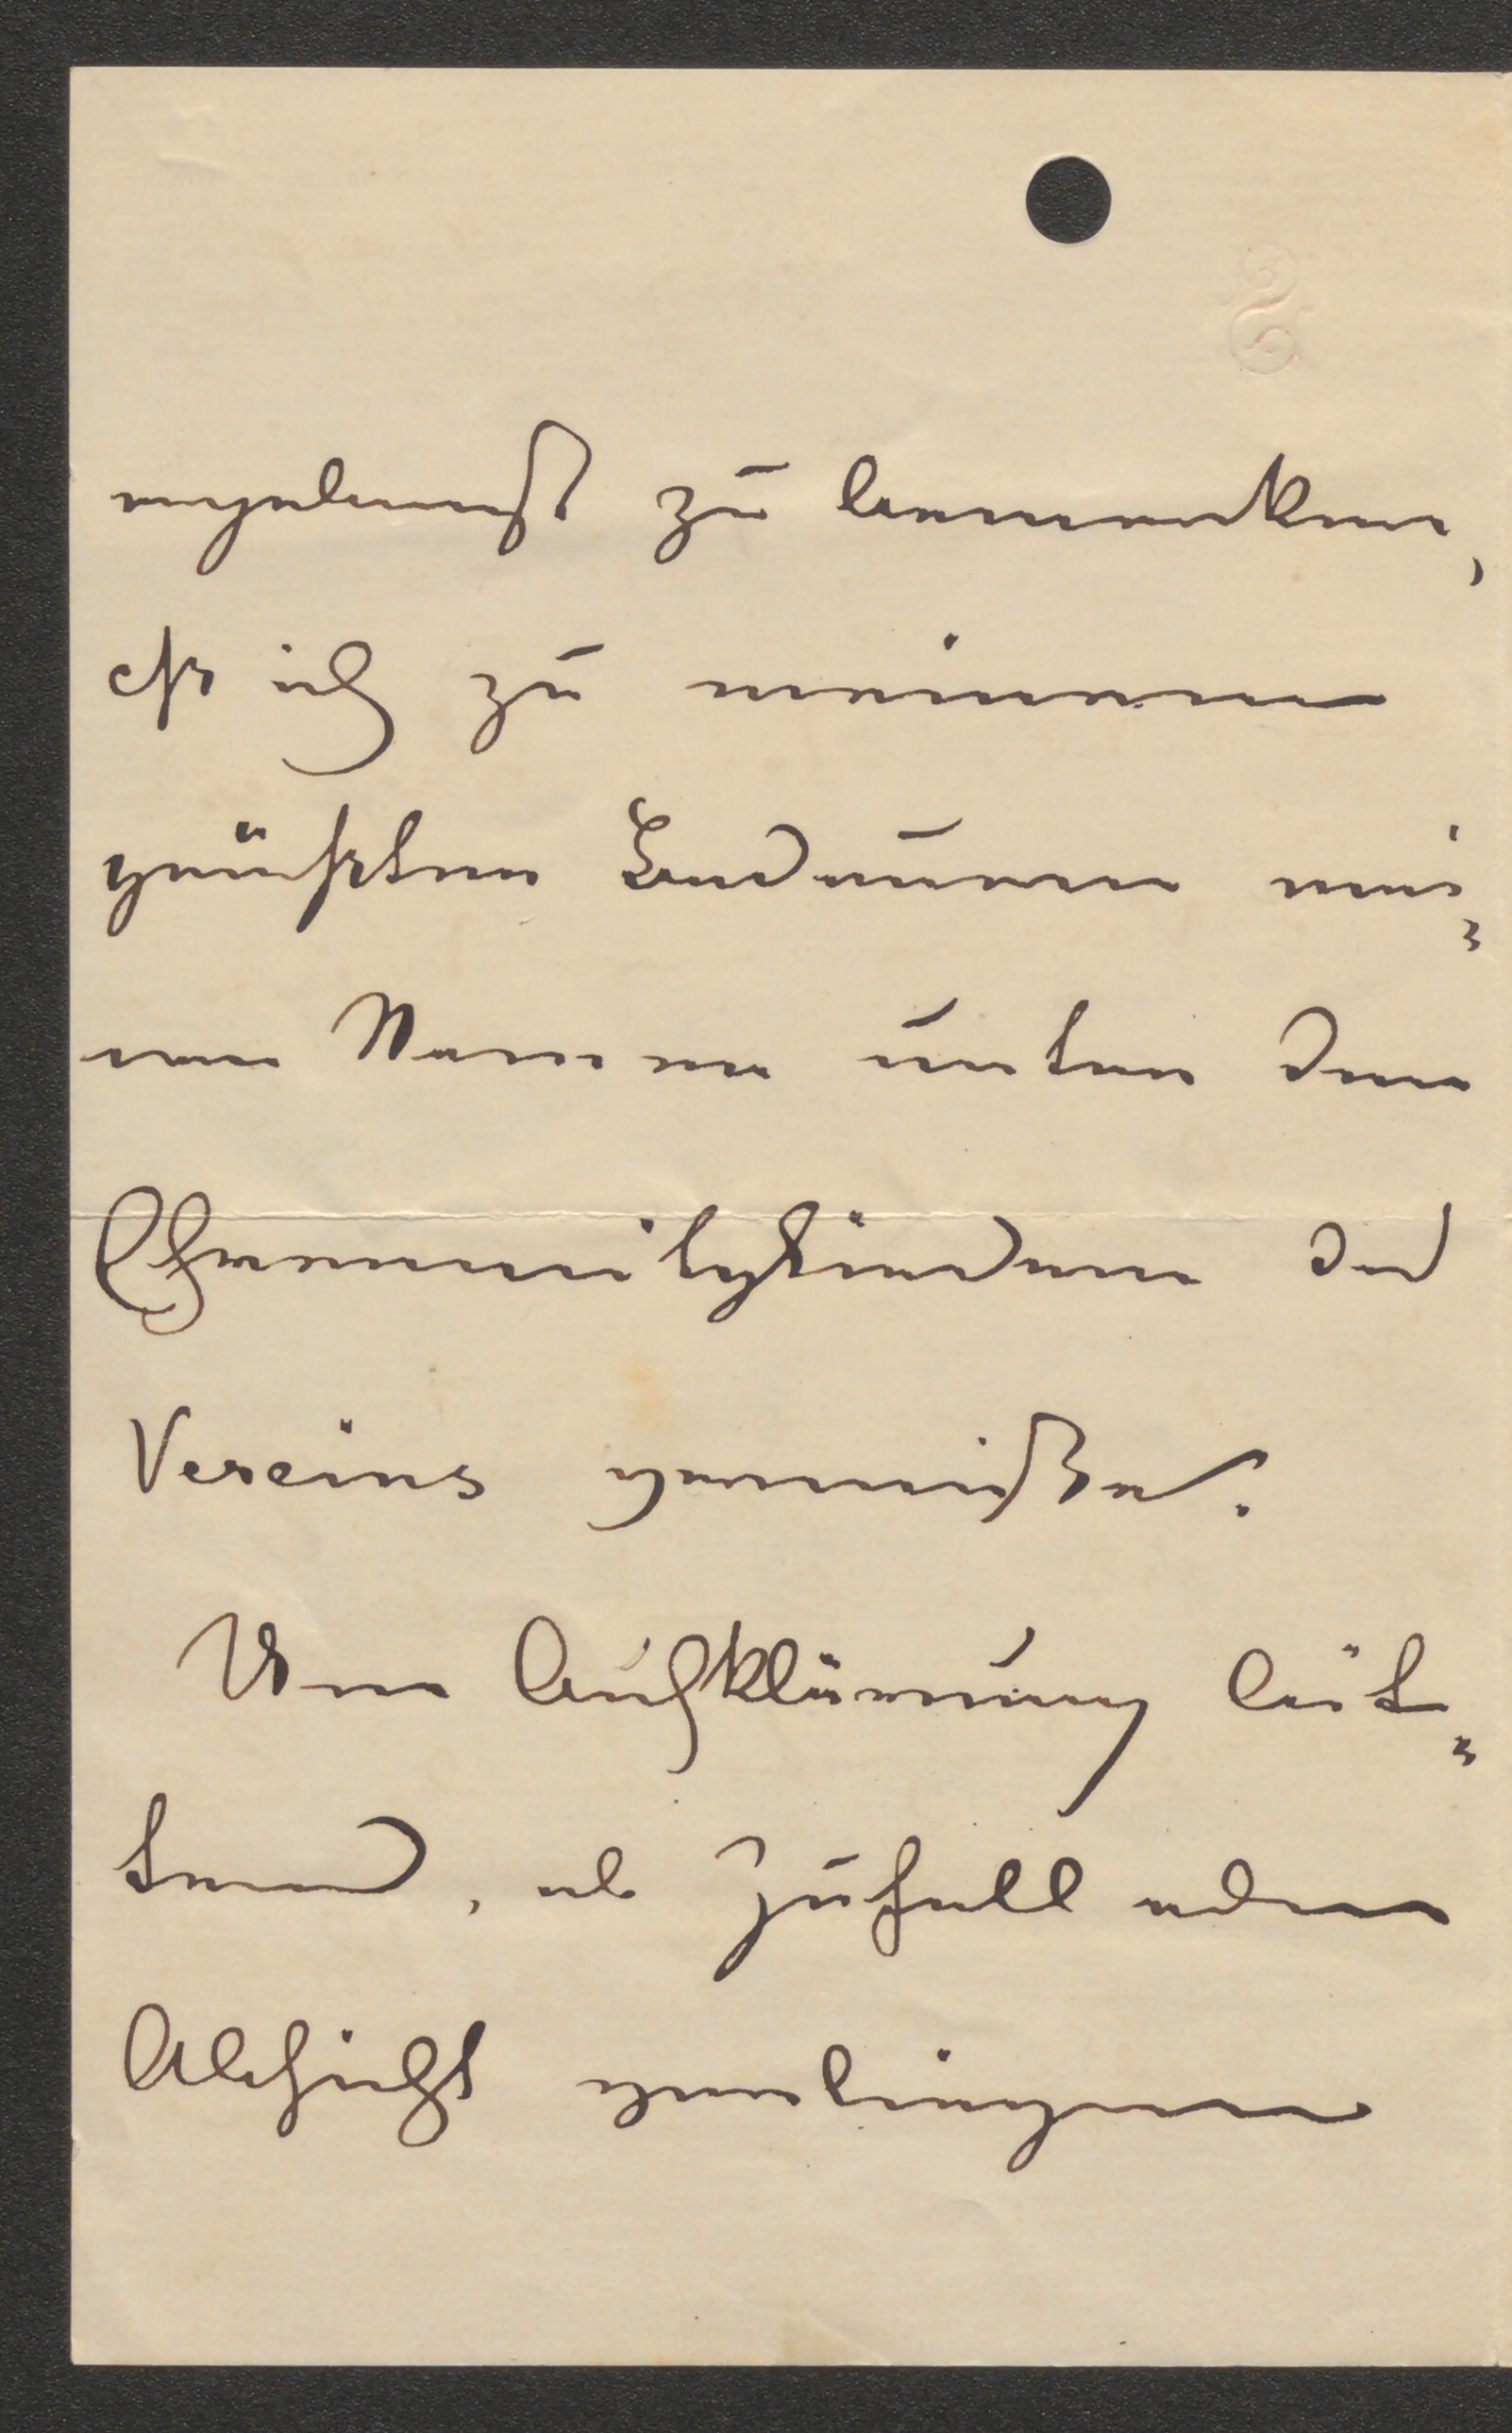 ergebenst zu bemerken,
daß ich zu meinem
größten Bedauern mei-
nen Namen unter den
Ehrenmitgliedern des
Vereins vermißte.
Um Aufklärung bit-
tend, ob Zufall oder
Absicht vorliegen